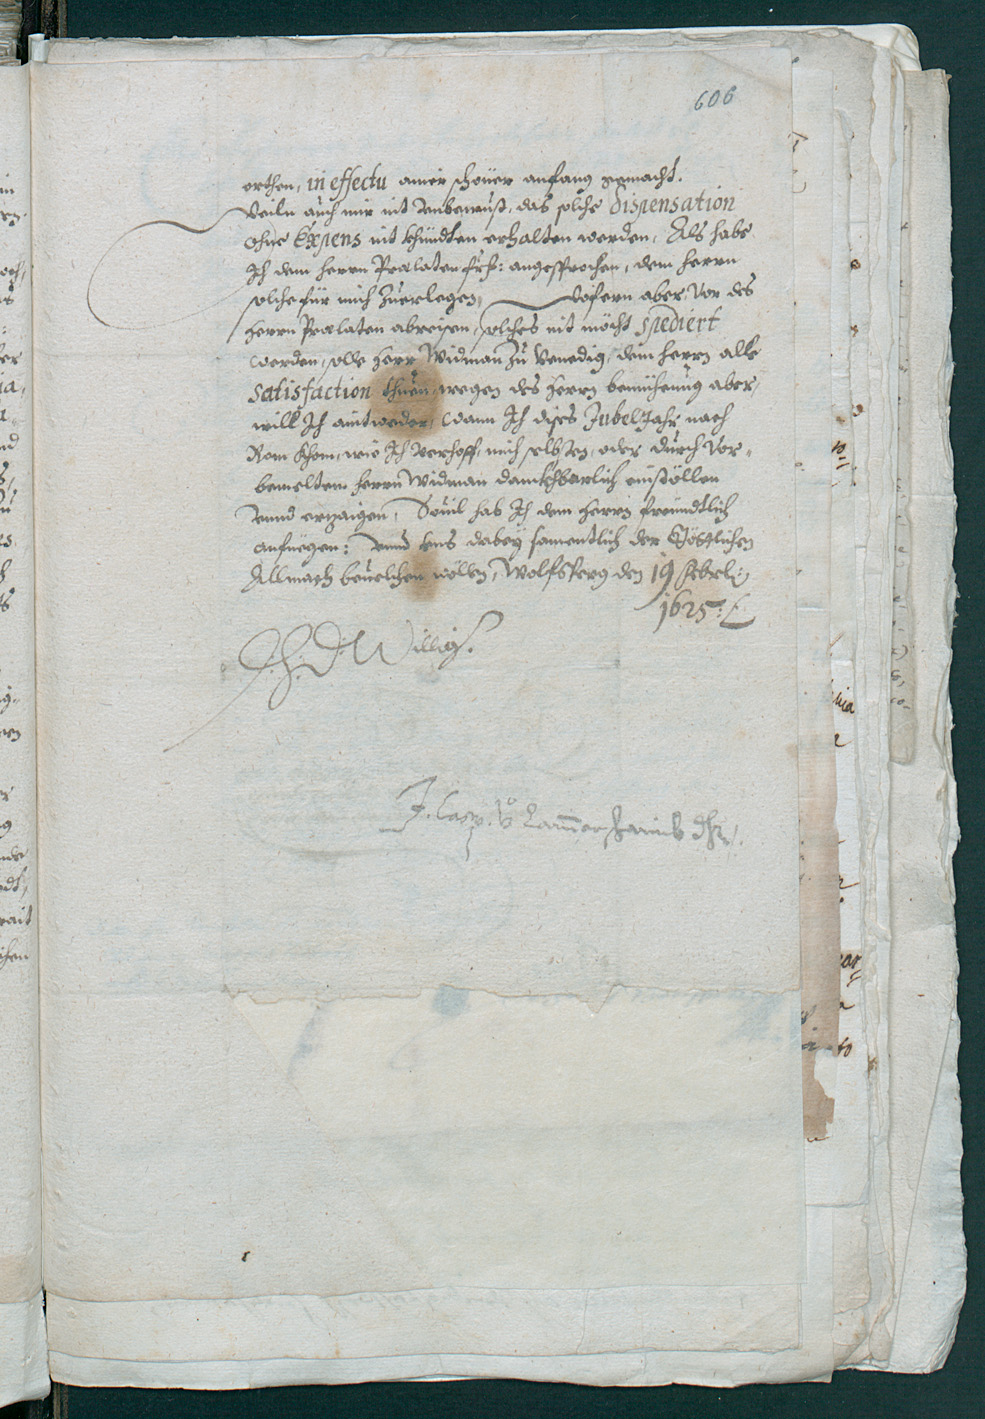 606
orthen, in effectu ainer schöner anfang gemacht.
Weiln auch mir nit vnbewust, das solche Dispensation
ohne Expens nit khündten erhalten werden, Als habe
Ich dem herrn Praelaten angesprochen, dem herrn
solche für mich Zuerlegen, Wofern aber vor des
herrn Praelaten abreisen, solches nit möcht spediert
werden, solle herr Widman zu Venedig, dem herrn alle
Satisfaction thuen, wegen des herrn bemühenng aber,
will Ich aintweder, wann Ich dises Jubel Jahr nach
Rom khom, wie Ich verhoff, mich selbsten, oder durch Vor-
bemelten herrn Widman danckhbarlich einstöllen
vnnd erzaigen, Souil hab Ich dem herrn freundtlich
anfuegen: vnnd vns dabey samentlich der Göttlichen
Allmach beuelchen wöllen, Wolfsperg den 19 Febr:
1625
D. H. D. Willig.
J. Casp. v.